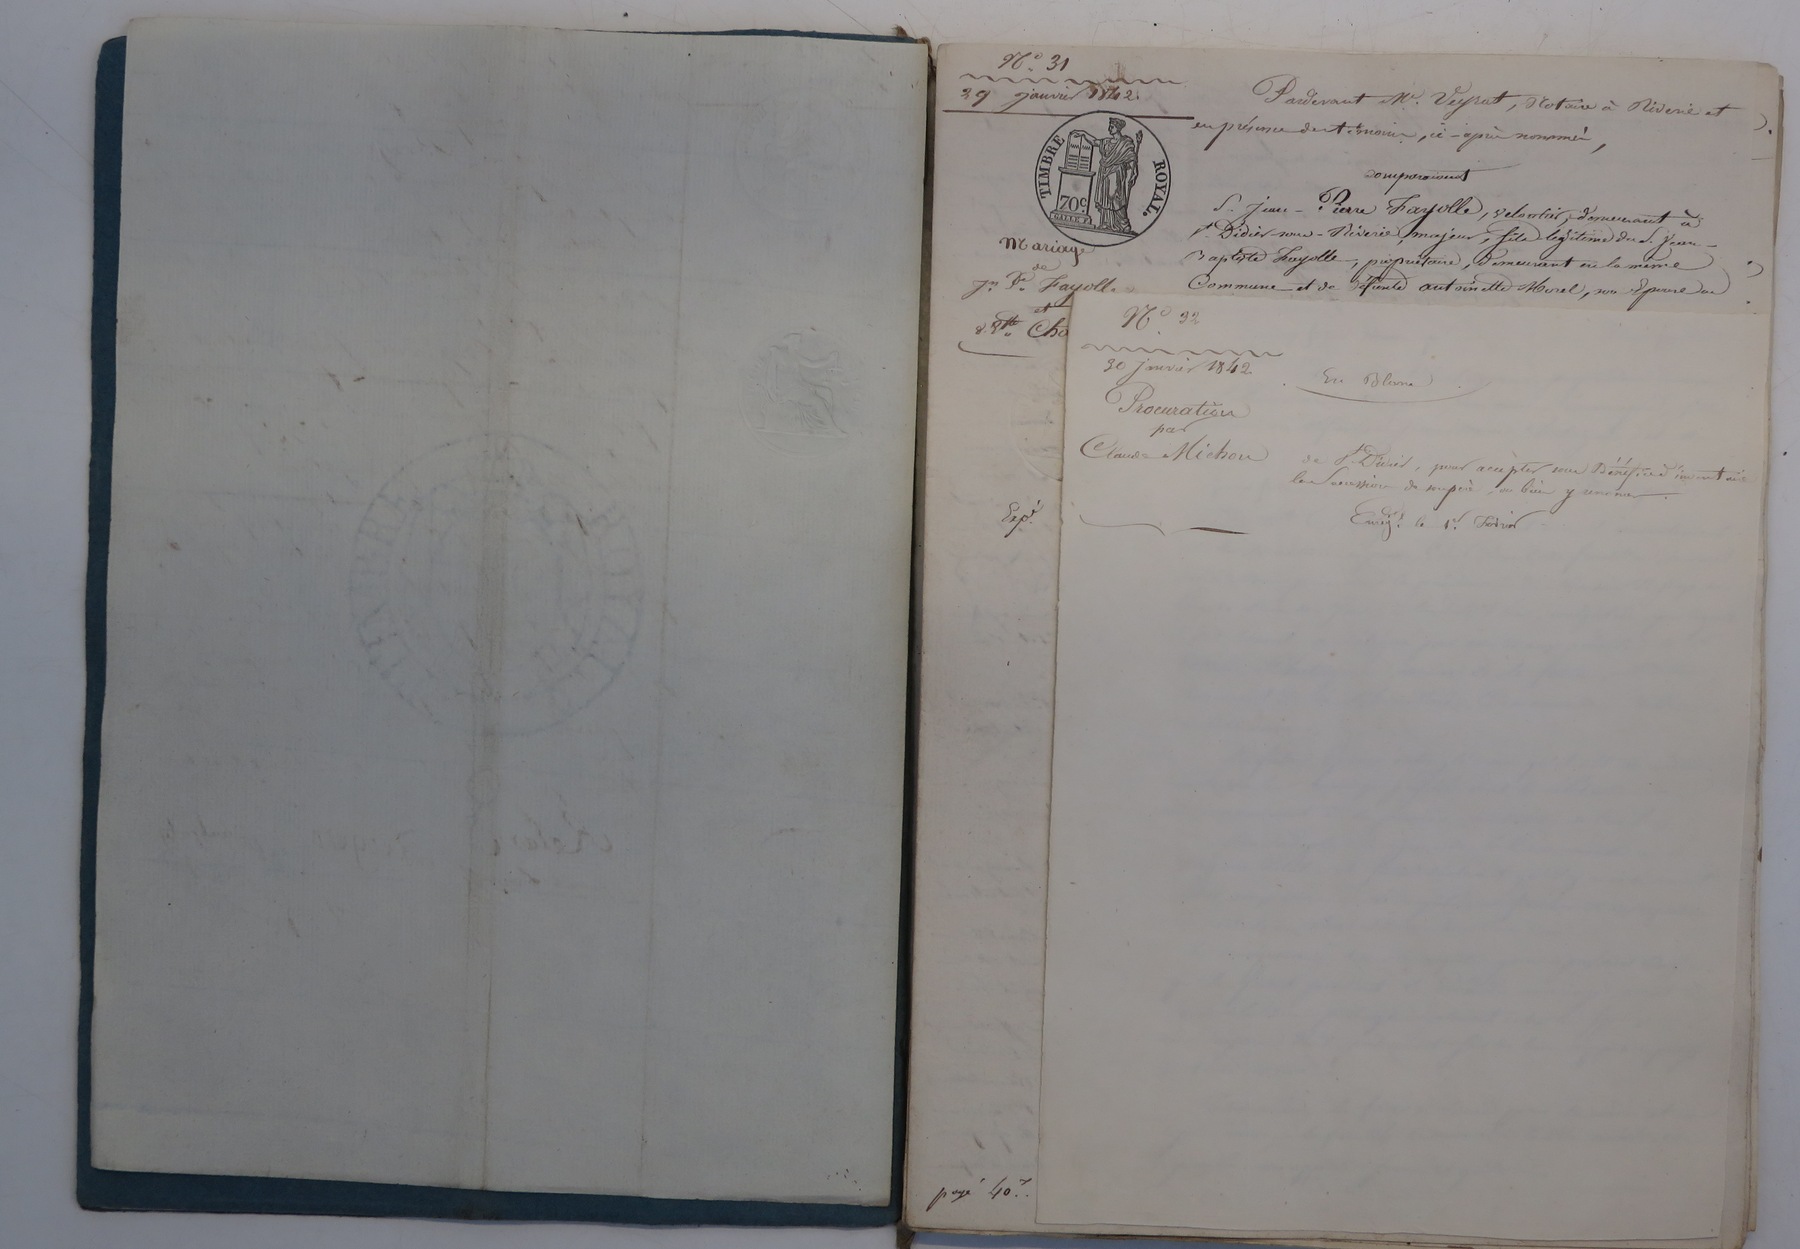 N.º 31
29 janvier 1842.
TIMBRE ROYAL.
70 c.
Mariage
de
Jn. Pre. Fayolle
et
Exp.é
payé 40.
Pardevant Me. Veyrat, Notaire à Riverie et
en présence des témoins, ci-après nommés,
comparaissent
S. Jean-Pierre Fayolle, demeurant à
St. Didier-sous-Riverie, majeur, fils légitime du S. Jean-
Baptiste Fayolle, propriétaire, demeurant en la même
Commune et de défunte antoinette Morel, son Epouse
N.º 32
30 janvier 1842
En Blanc
Procuration
par
Claude Michon
de St. Didier, pour accepter sous Bénéfice d'inventaire
la succession de son père, ou bien y renoncer.
Enreg. le 1er. février